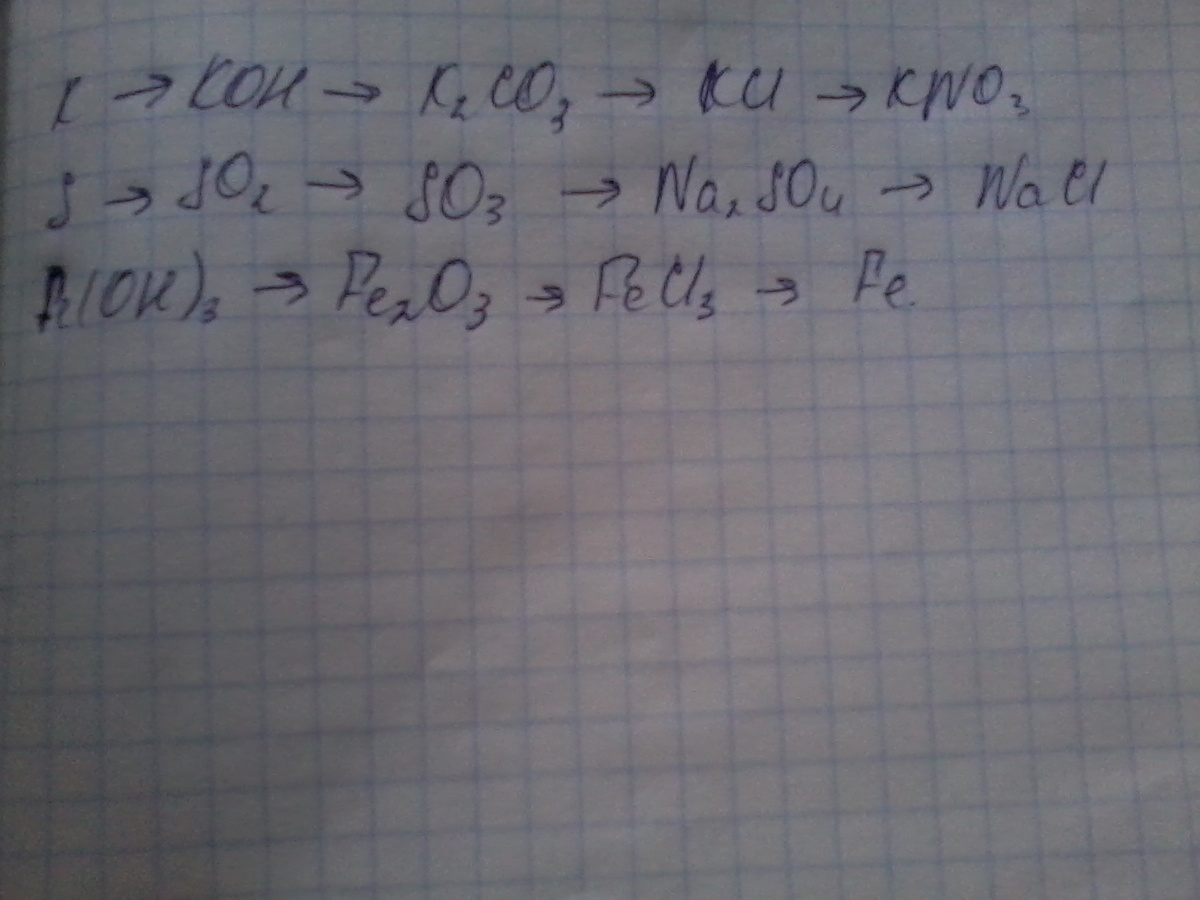 K → KOH → K₂CO₃ → KCl → KNO₃
S → SO₂ → SO₃ → Na₂SO₄ → NaCl
Fe(OH)₃ → Fe₂O₃ → FeCl₃ → Fe.